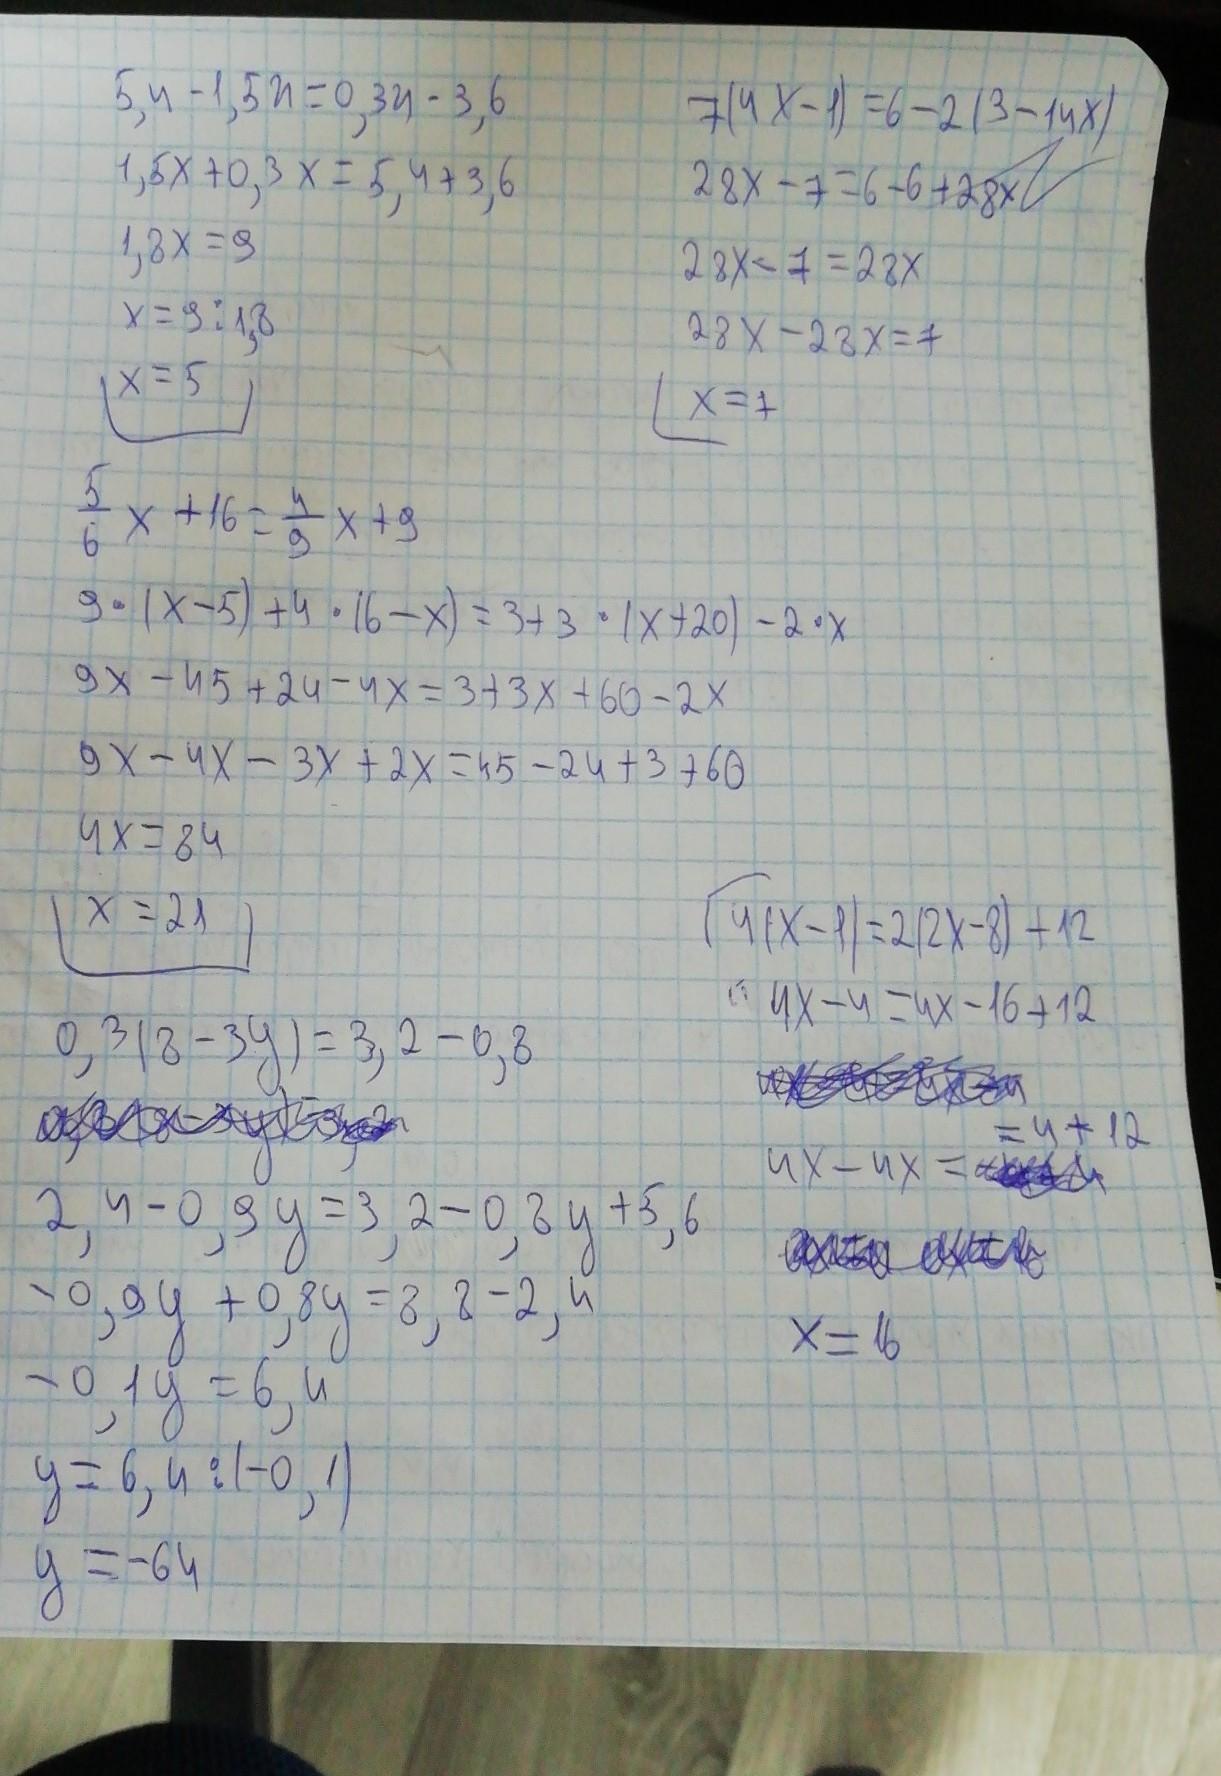 5,4-1,5x=0,3x-3,6
1,5x+0,3x=5,4+3,6
1,8x=9
x=9:1,8
x=5
7(4x-1)=6-2(3-14x)
28x-7=6-6+28x
28x-7=28x
28x-28x=7
x=7
5/6 x+16=4/9 x+9
9·(x-5)+4·(6-x)=3+3·(x+20)-2·x
9x-45+24-4x=3+3x+60-2x
9x-4x-3x+2x=45-24+3+60
4x=84
x=21
0,3(8-3y)=3,2-0,8
2,4-0,9y=3,2-0,8y+5,6
-0,9y+0,8y=8,8-2,4
-0,1y=6,4
y=6,4:(-0,1)
y=-64
4(x-1)=2(2x-8)+12
4x-4=4x-16+12
4x-4x==4+12
x=16